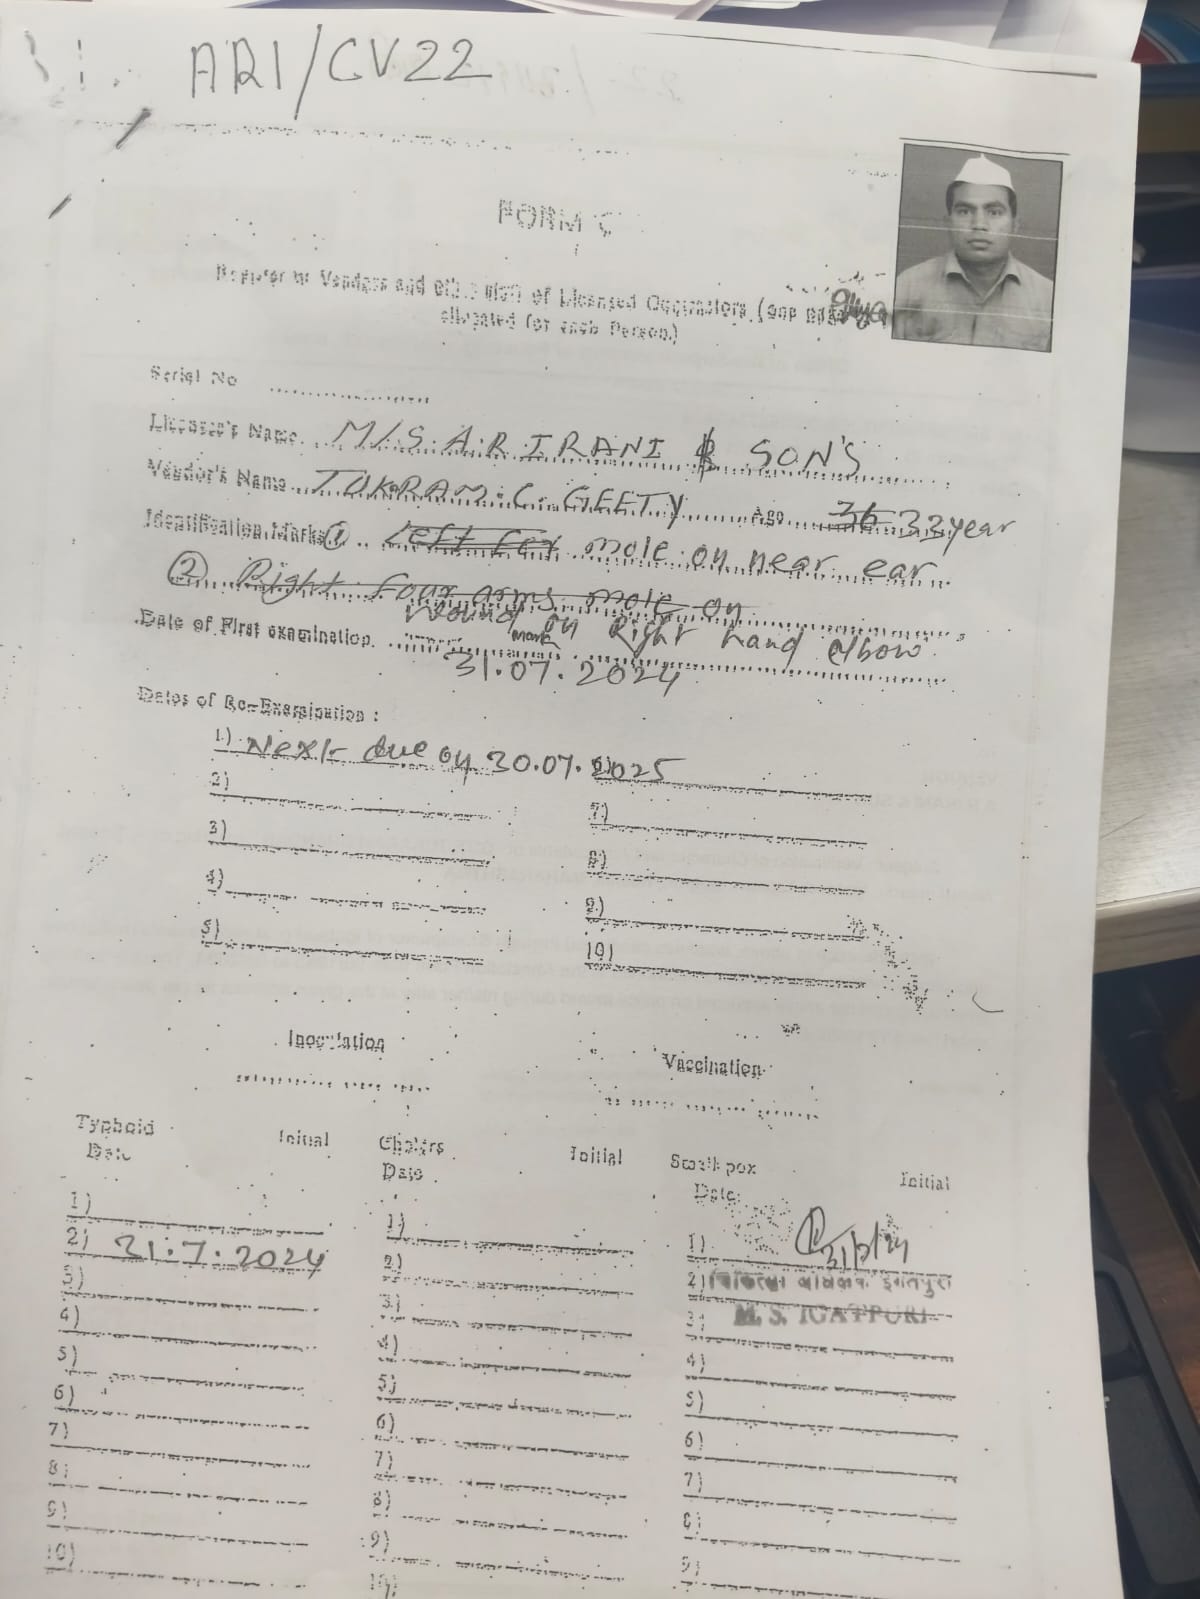 ARI/CV22
FORM C
Register of Vendors and other staff of Licensed Contractors (one page
allocated for each Person.)
Serial No
Licensee's Name M/S A.R IRANI & SON'S
Vendor's Name TUKARAM C. GEETY Age 36 33 year
Identification Marks ① Left mole on near ear
② Right four arms mole on
Wound mark on Right hand elbow
Date of First examination
31.07.2024
Dates of Re-Examination :
1) Next due on 30.07.2025
2)
7)
3)
8)
4)
9)
5)
10)
Inoculation Vaccination
Typhoid Initial Cholera Initial Small pox Initial
Date Date Date
1) 1) 1) 31/7/24
2) 31.7.2024 2) 2) इगतपुरी
3) 3) 3) M. S. IGATPURI
4) 4) 4)
5) 5) 5)
6) 6) 6)
7) 7) 7)
8) 8) 8)
9) 9) 9)
10) 10)